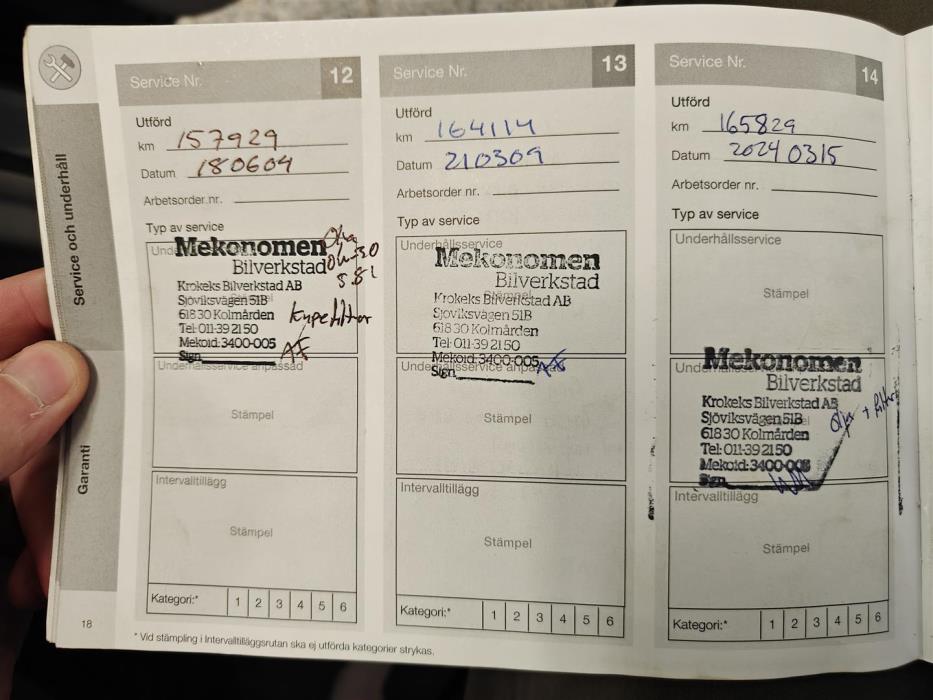 Service och underhåll
Garanti
Service Nr. 12
Utförd
km 157929
Datum 180604
Arbetsorder nr.
Typ av service
Underhållsservice
Mekonomen
Bilverkstad
Krokeks Bilverkstad AB
Sjöviksvägen 51B
618 30 Kolmården
Tel: 011-39 21 50
Mekoid: 3400-005
Sign.
Olja
5.8 l
Kupefilter
AF
Underhållsservice anpassad
Stämpel
Intervalltillägg
Stämpel
Kategori:* 1 2 3 4 5 6
18
* Vid stämpling i Intervalltilläggsrutan ska ej utförda kategorier strykas.
Service Nr. 13
Utförd
km 164114
Datum 210309
Arbetsorder nr.
Typ av service
Underhållsservice
Mekonomen
Bilverkstad
Stämpel
Krokeks Bilverkstad AB
Sjöviksvägen 51B
618 30 Kolmården
Tel: 011-39 21 50
Mekoid: 3400-005
Sign.
AF
Underhållsservice anpassad
Stämpel
Intervalltillägg
Stämpel
Kategori:* 1 2 3 4 5 6
Service Nr. 14
Utförd
km 165829
Datum 20240315
Arbetsorder nr.
Typ av service
Underhållsservice
Stämpel
Mekonomen
Bilverkstad
Krokeks Bilverkstad AB
Sjöviksvägen 51B
618 30 Kolmården
Tel: 011-39 21 50
Mekoid: 3400-005
Sign.
Olja + filter
Intervalltillägg
Stämpel
Kategori:* 1 2 3 4 5 6